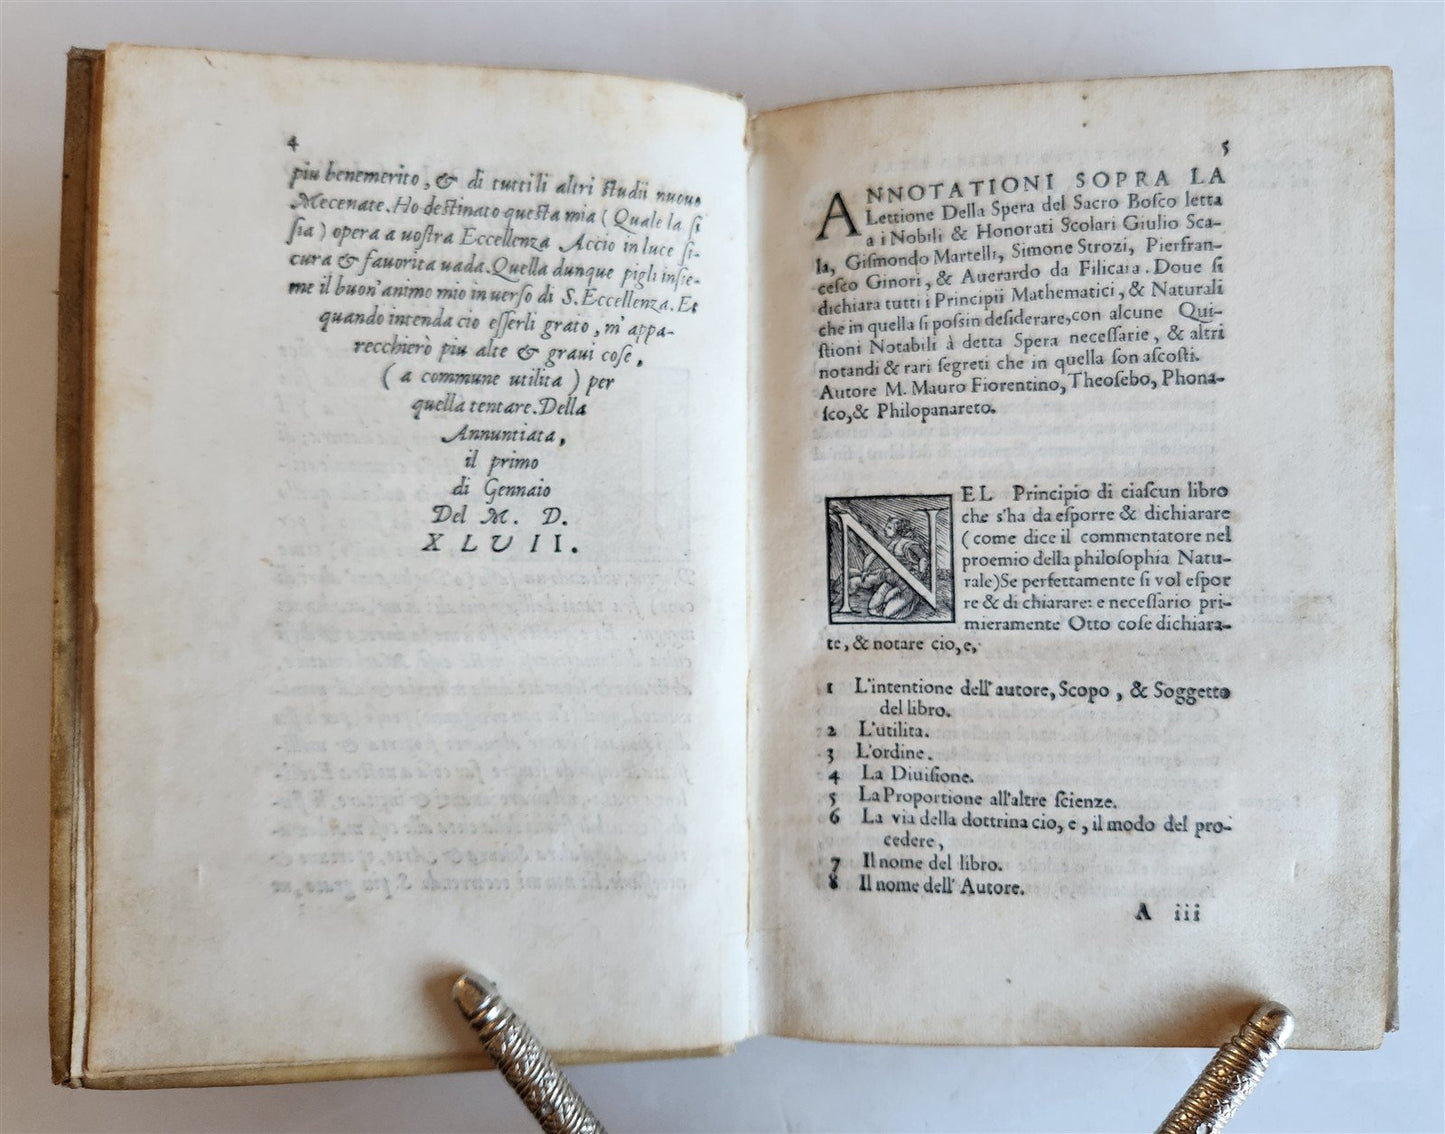 4
piu benemerito, & di tutti li altri ſtudii nuouo
Mecenate. Ho deſtinato queſta mia ( Quale la ſi
ſia ) opera a uoſtra Eccellenza Accio in luce ſi-
cura & fauorita uada. Quella dunque pigli inſie-
me il buon' animo mio in uerſo di S. Eccellenza. Et
quando intenda cio eſſerli grato, m' appa-
recchierò piu alte & graui coſe,
( a commune utilita ) per
quella tentare. Della
Annuntiata,
il primo
di Gennaio
Del M. D.
XLVII.
5
ANNOTATIONI SOPRA LA
Lettione Della Spera del Sacro Boſco letta
a i Nobili & Honorati Scolari Giulio Sca-
la, Giſmondo Martelli, Simone Strozi, Pierfran-
ceſco Ginori, & Auerardo da Filicaia. Doue ſi
dichiara tutti i Principii Mathematici, & Naturali
che in quella ſi poſsin deſiderare, con alcune Qui-
ſtioni Notabili à detta Spera neceſſarie, & altri
notandi & rari ſegreti che in quella ſon aſcoſti.
Autore M. Mauro Fiorentino, Theoſebo, Phona-
ſco, & Philopanareto.
NEL Principio di ciaſcun libro
che s'ha da eſporre & dichiarare
( come dice il commentatore nel
proemio della philoſophia Natu-
rale) Se perfettamente ſi vol eſpor
re & di chiarare: e neceſſario pri-
mieramente Otto coſe dichiara-
te, & notare cio, e,
1 L'intentione dell' autore, Scopo, & Soggetto
del libro.
2 L'utilita.
3 L'ordine.
4 La Diuiſione.
5 La Proportione all'altre ſcienze.
6 La via della dottrina cio, e, il modo del pro-
cedere,
7 Il nome del libro.
8 Il nome dell' Autore.
A iii